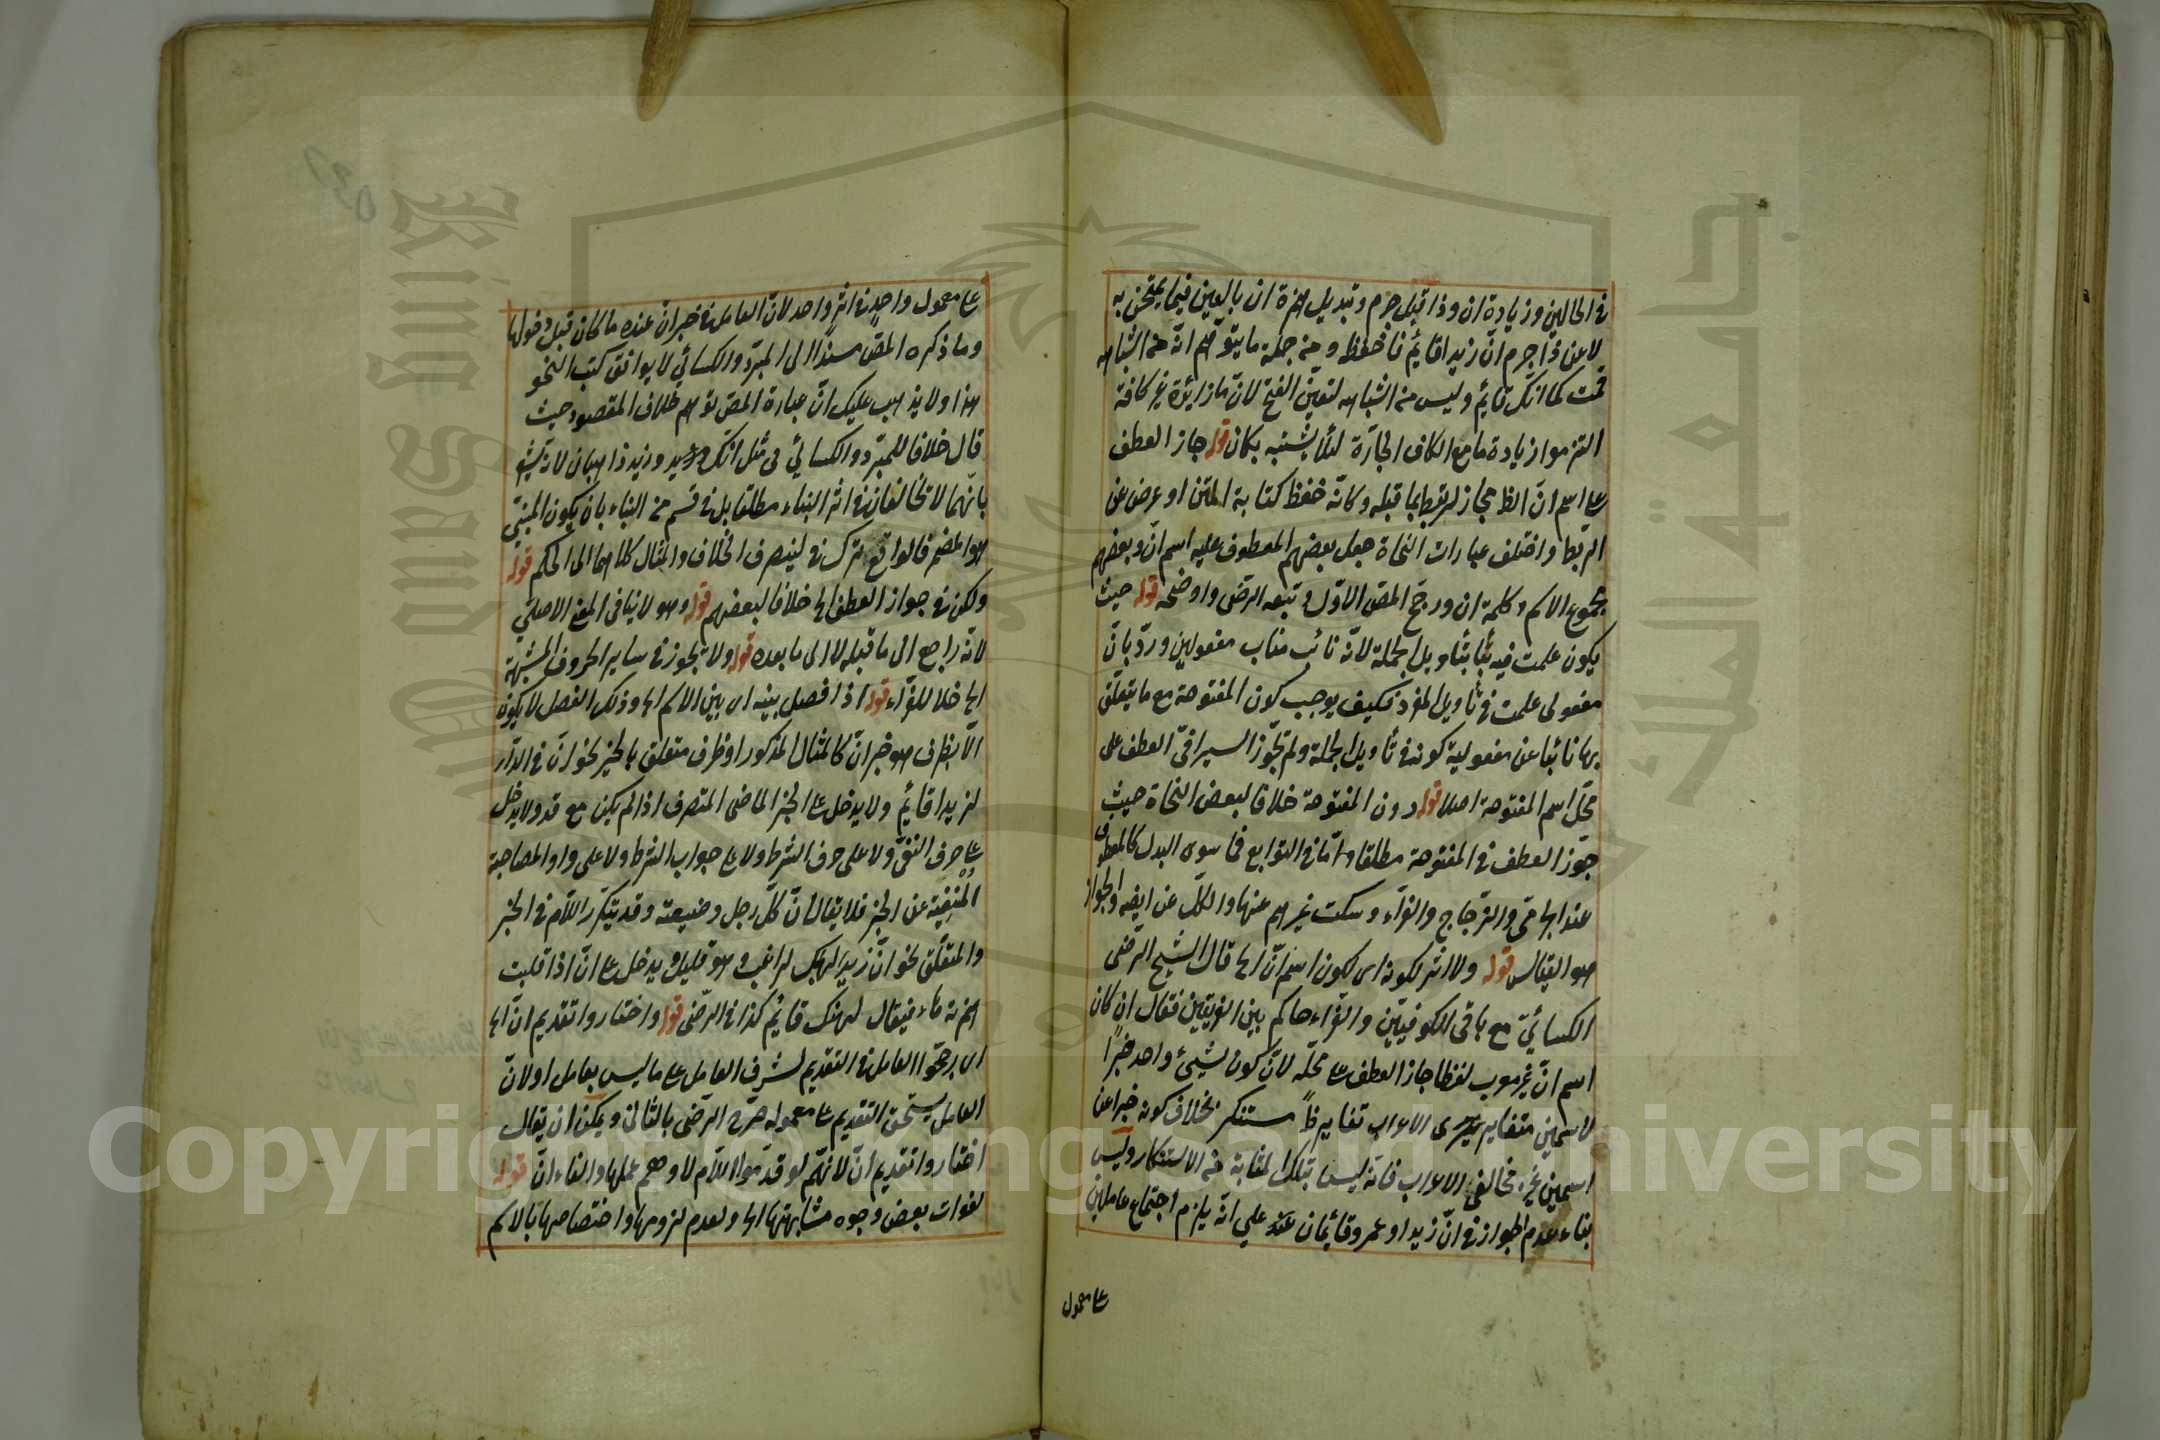 في الحالين وزيادة ان وذا قبل جرم وتبديل همزة ان بالعين فيما يمتحن به
لا عن ذا جرم انّ زيدا قايم فاحفظه ومن جملة ما يتوهم انه من الشباه
قمت كما انّك قايم وليس من الشباه لتعين الفتح لان ما زايدة غير كافة
التزموا زيادة ما مع الكاف الجارّة لئلا يشتبه بكان قوله جاز العطف
على اسم انّ الظ مجاز لربط بما قبله وكانّه خفظ كتابة المتن او عرض عن
الربط واختلف عبارات النحاة جعل بعضهم المعطوف عليه اسم انّ وبعضهم
مجموع الاسم وكلمة ان ورجح المص الاوّل وتبعه الرضى واوضحه قوله حيث
يكون علمت فيه بتأويل الجملة لانّه نائب مناب مفعولين وردّ بانّ
مفعولى علمت في تأويل المفرد فكيف يوجب كون المفتوحة مع ما يتعلّق
بها نائبا عن مفعولية كونه في تأويل الجملة ولم يجوّز السيرافىّ العطف على
محلّ اسم المفتوحة اصلا قوله دون المفتوحة خلافا لبعض النحاة حيث
جوّز العطف في المفتوحة مطلقا وامّا في التوابع فما سوى البدل كالمعطوف
عند الجرمىّ والزجّاج والفرّاء وسكت غيرهم عنها والكلّ عن ايضه والجواز
هو القياس قوله ولا اثر لكونه اى لكون اسم انّ الخ قال الشيخ الرضى
الكسائيّ مع باقى الكوفيّين والفرّاء حاكم بين الفريقين فقال ان كان
اسم انّ غير معرب لفظا جاز العطف على محلّه لانّ كون شيئ واحد خبرًا
لاسمين متغايرى الاعراب تغاير ظ مستنكر بخلاف كونه خبرا عن
اسمين غير مخالفى الاعراب فانه ليس بتلك المثابة من الاستنكار وليس
بناء عدم الجواز في انّ زيدا وعمرو قائمان عنده على انّه يلزم اجتماع عاملين
على معمول
على معمول واحد في اثر واحد لانّ العامل في خبر انّ عنده ما كان قبل دخولها
وما ذكره المص مسندًا الى المبرّد والكسائي لا يوافق كتب النحو
هذا ولا يذهب عليك انّ عبارة المص توهم خلاف المقصود حيث
قال خلافا للمبرّد والكسائي فى مثل انّك وزيد وزيد ذاهبان لانه يشعر
بانّهما لا تخالفان في اثر البناء مطلقا بل في قسم من البناء بان يكون المبنىّ
هو المضمر فالواقع ترك في لينصرف الخلاف والمثال كلاهما الى الحكم قوله
ولكن في جواز العطف الخ خلافًا لبعضهم قوله وهو لا ينافى المعنى الاصلىّ
لانه راجع الى ما قبله لا الى ما بعده قوله ولا يجوز في ساير الحروف المشبهة
الخ خلافا للفرّاء قوله اذا فصل بينه اى بين الاسم الخ وذلك الفصل لا يكون
الّا بظرف هو خبر انّ كالمثال المذكور او ظرف متعلق بالخبر نحو انّ في الدّار
لزيدا قايم ولا يدخل على الخبر الماضى المتصرف اذا لم يكن مع قد ولا يدخل
على حرف النفى ولا على حرف الشرط ولا على جواب الشرط ولا على واو المصاحبة
المغنية عن الخبر فلا يقال انّ كلّ رجل وضيعته وقد يتكرّر اللّام في الخبر
والمتعلّق نحو انّ زيدا لبك لراغب وهو قليل ويدخل على انّ اذا قلبت
همزته هاء فيقال لهنّك قايم كذا في الرّضى قوله واختاروا تقديم انّ الخ
اى رجّحوا العامل في التقديم لشرف العامل على ما ليس بعامل او لانّ
العامل يستحق التقديم على معموله صرّح الرّضى بالثانى ويمكن ان يقال
اختاروا تقديم انّ لانّهم لو قدّموا اللّام لاوهم عملها والغاء انّ قوله
لفوات بعض وجوه مشابهتها الخ ولعدم لزومها واختصاصها بالاسم
Copyright © King Saud University
King Saud University
جامعة الملك
1957